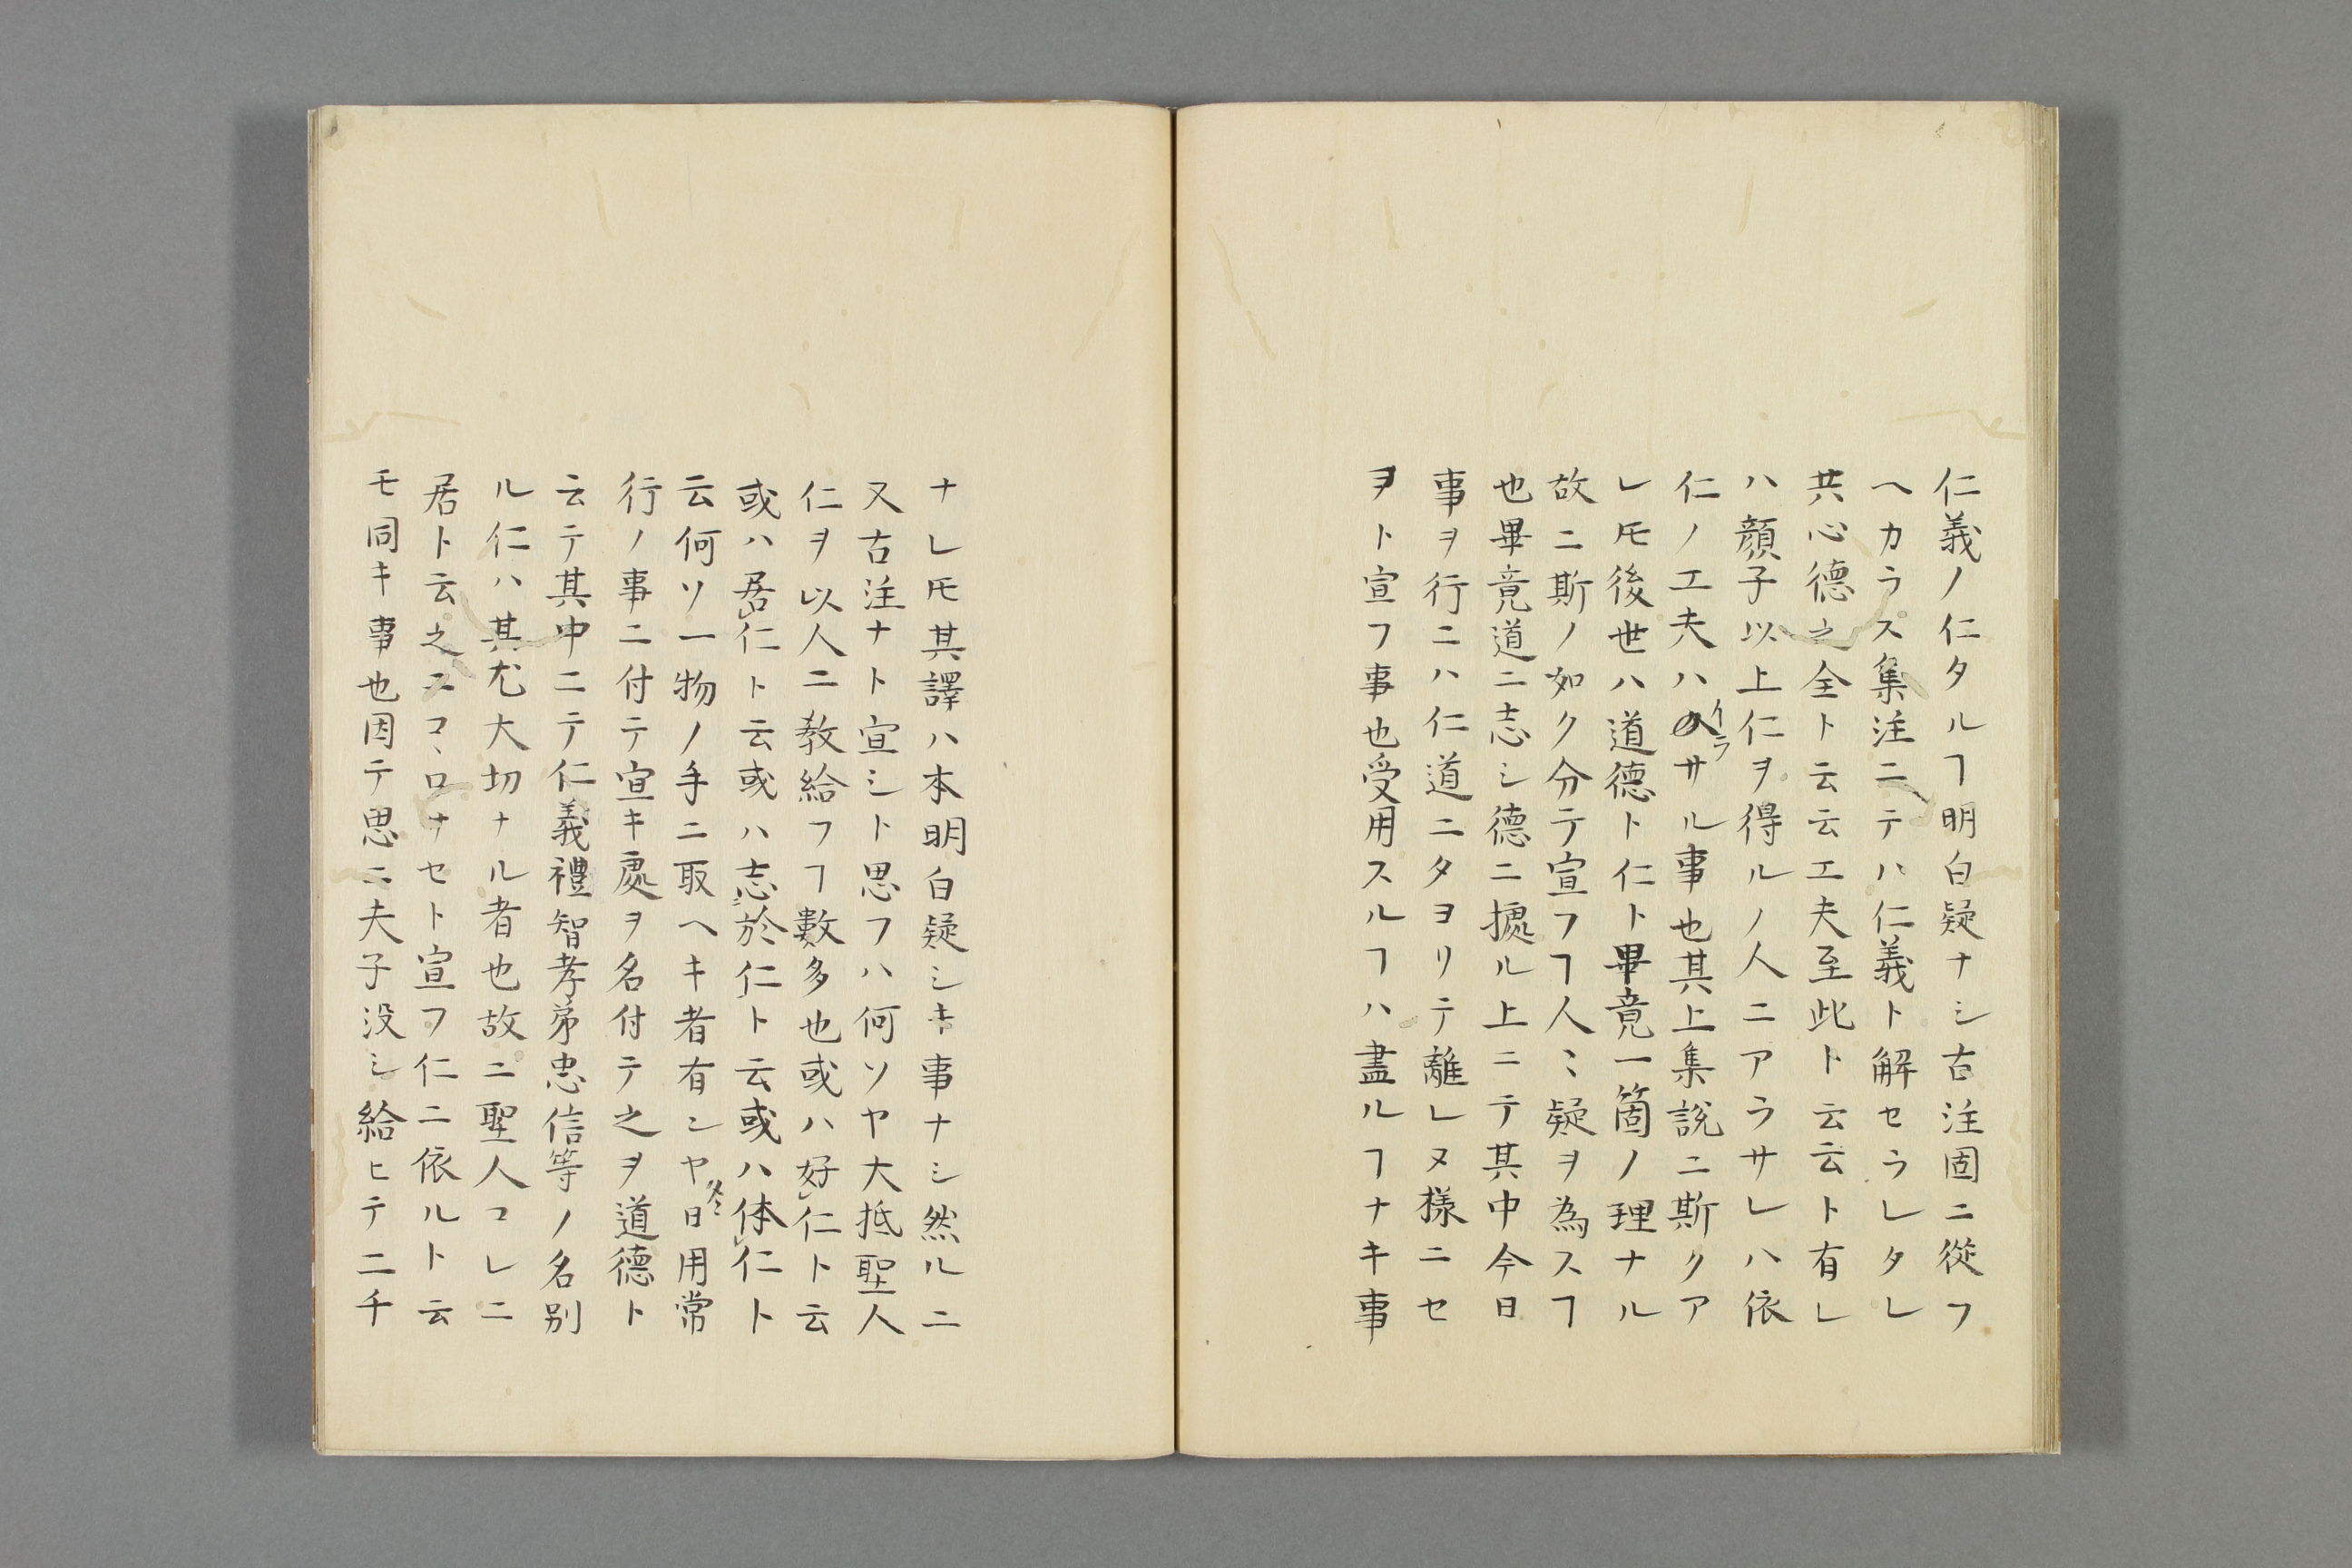 仁義ノ仁タルヿ明白疑ナシ古注固ニ從フ
ヘカラス集注ニテハ仁義ト解セラレタレ
共心德之全ト云云工夫至此ト云云ト有レ
ハ顔子以上仁ヲ得ルノ人ニアラサレハ依
仁ノ工夫ハ入イラサル事也其上集説ニ斯クア
レ𪜈後世ハ道德ト仁ト畢竟一箇ノ理ナル
故ニ斯ノ如ク分テ宣フヿ人〻疑ヲ為スヿ
也畢竟道ニ志シ德ニ㩀ル上ニテ其中今日
事ヲ行ニハ仁道ニタヨリテ離レヌ樣ニセ
ヨト宣フ事也受用スルヿハ盡ルヿナキ事
ナレ𪜈其譯ハ本明白疑シキ事ナシ然ルニ
又古注ナト宣シト思フハ何ソヤ大抵聖人
仁ヲ以人ニ教給フヿ數多也或ハ好レ仁ト云
或ハ居レ仁ト云或ハ志ニ於仁ト云或ハ体レ仁ト
云何ソ一物ノ手ニ取ヘキ者有シヤ日用常
行ノ事ニ付テ宣キ處ヲ名付テ之ヲ道德ト
云テ其中ニテ仁義禮智孝弟忠信等ノ名別
ル仁ハ其尤大切ナル者也故ニ聖人コレニ
居ト云之ニコヽロナセト宣フ仁ニ依ルト云
モ同キ事也因テ思ニ夫子没シ給ヒテ二千